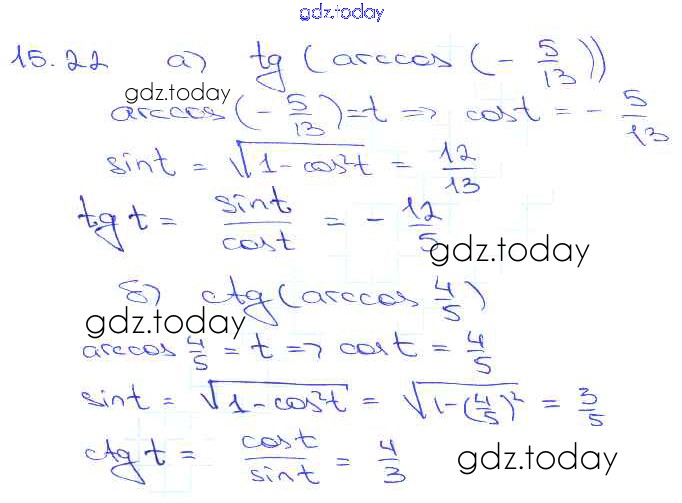 gdz.today
15.22 а) tg (arccos (- 5/13))
gdz.today
arccos (- 5/13) = t => cos t = - 5/13
sin t = √(1 - cos²t) = 12/13
tg t = sin t / cos t = - 12/5
gdz.today
б) ctg (arccos 4/5)
gdz.today
arccos 4/5 = t => cos t = 4/5
sin t = √(1 - cos²t) = √(1 - (4/5)²) = 3/5
ctg t = cos t / sin t = 4/3
gdz.today